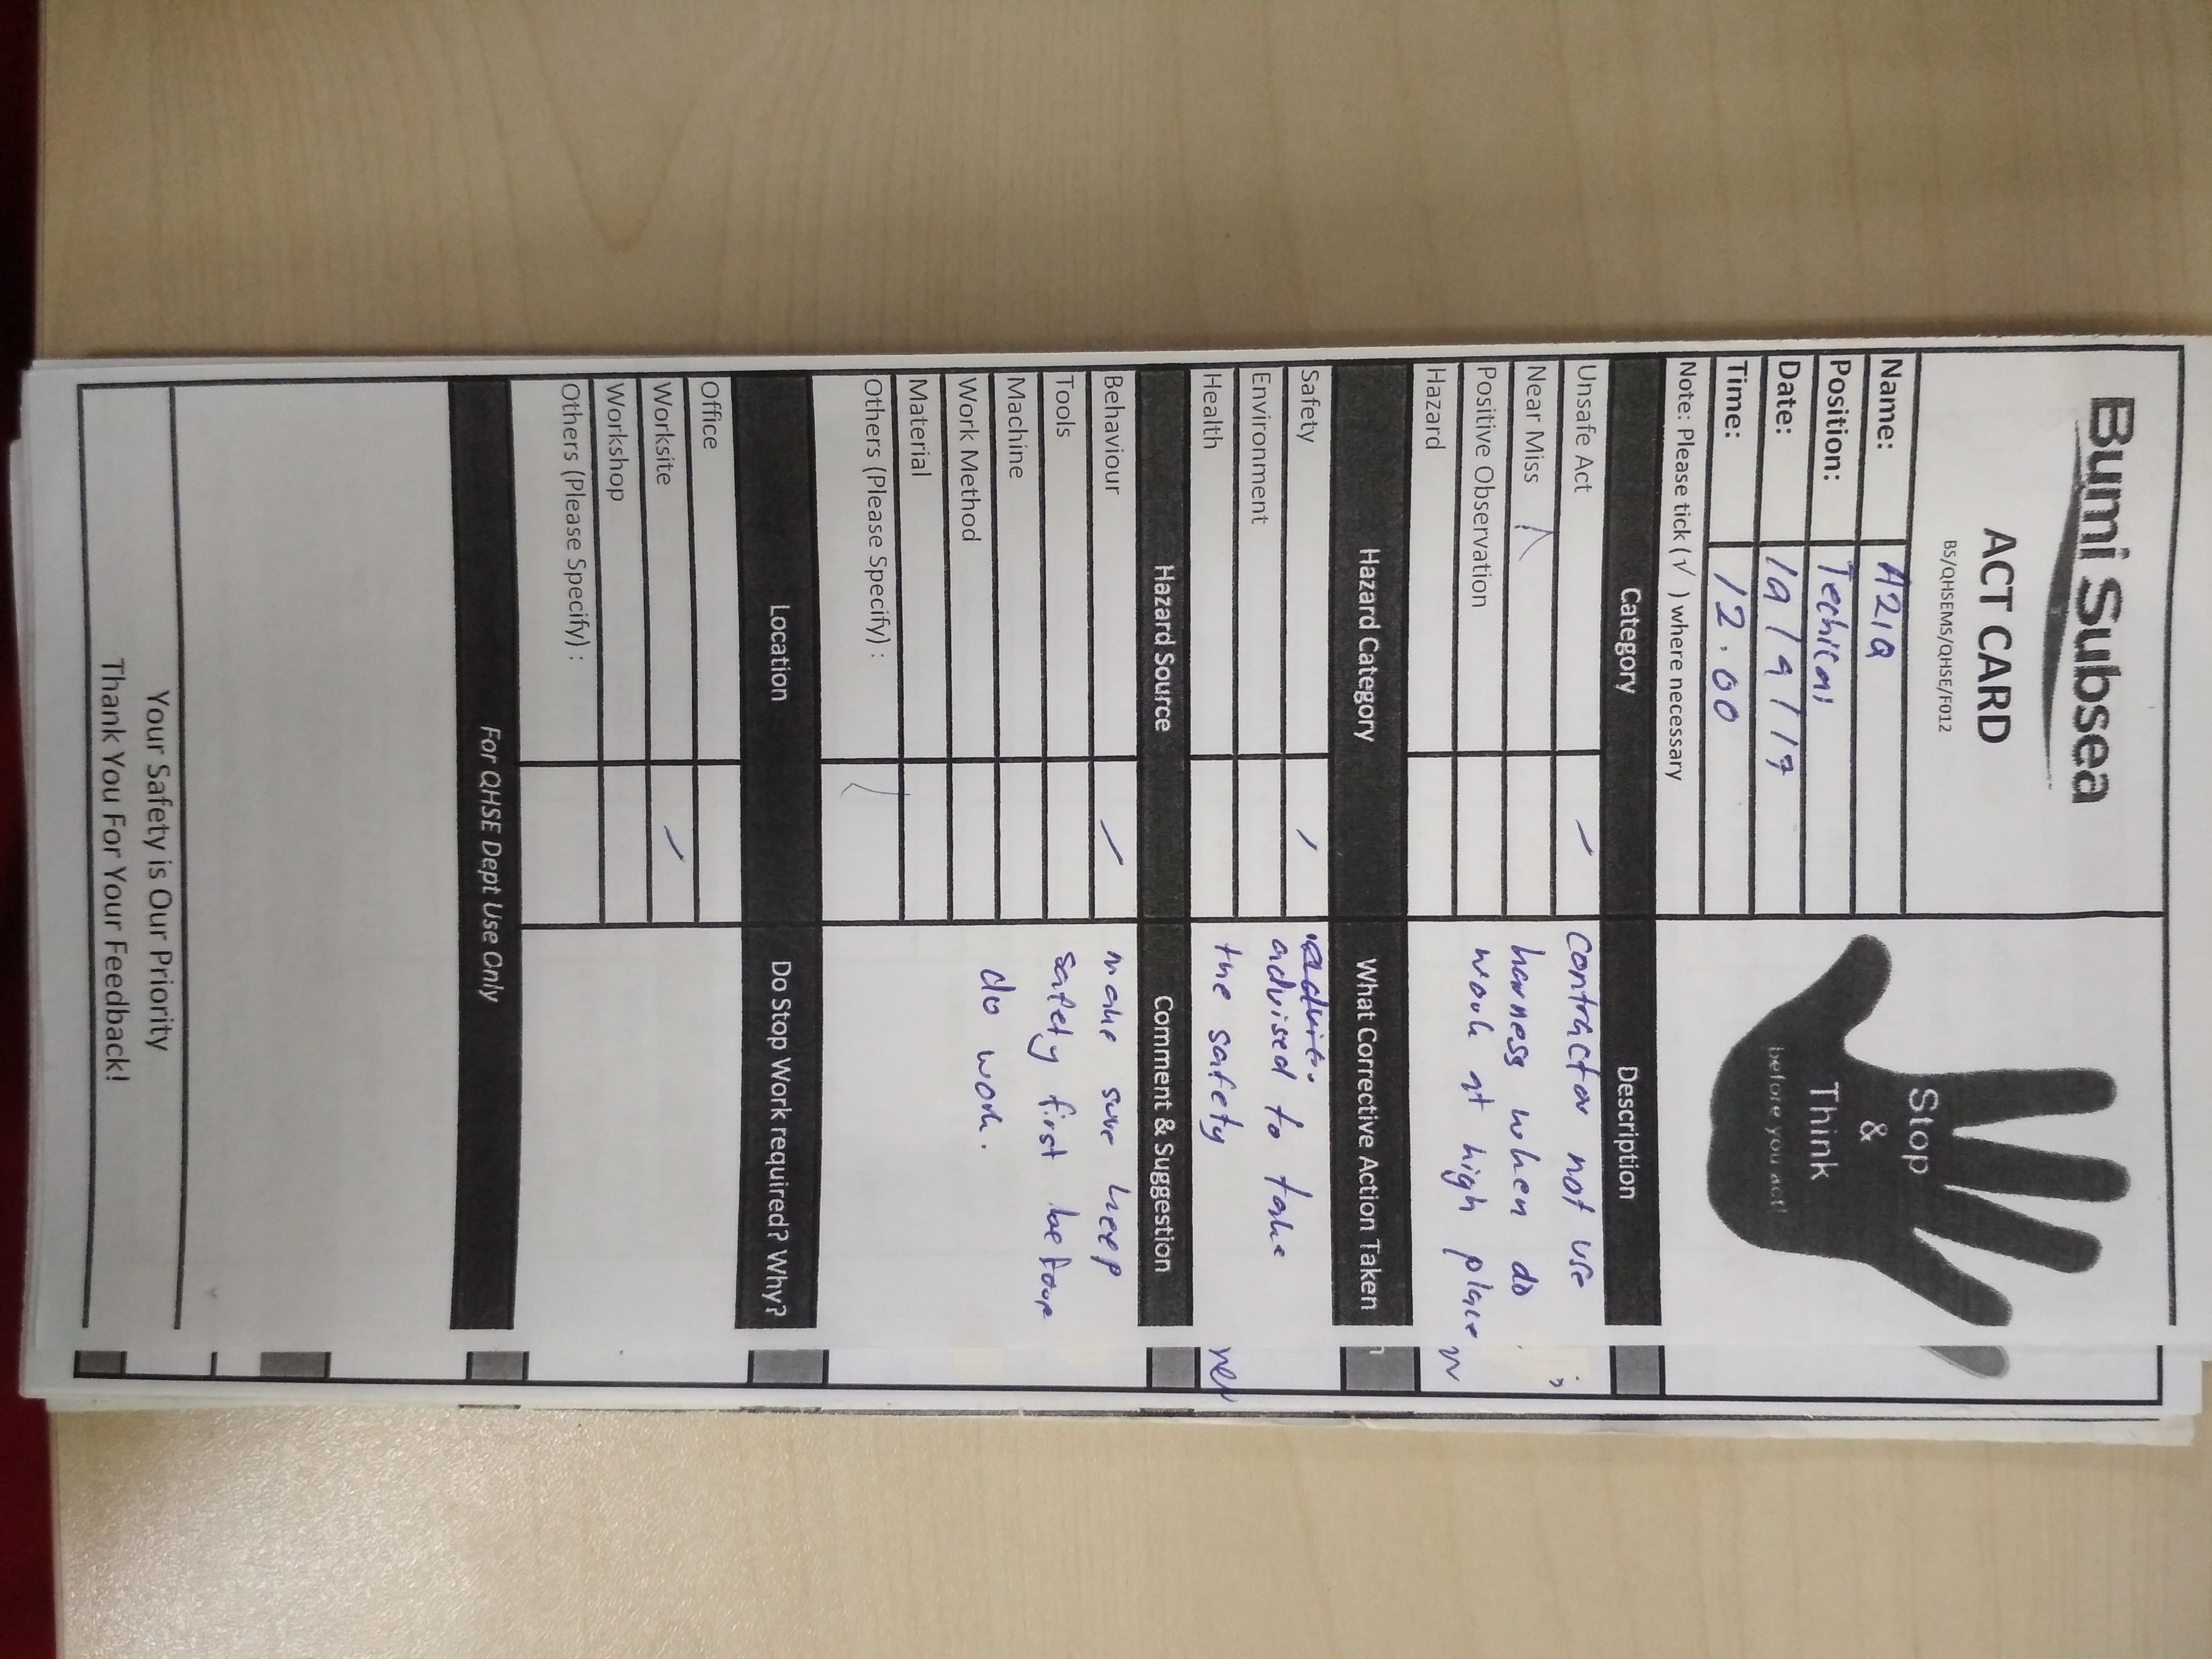 Bumi Subsea
ACT CARD
BS/QHSEMS/QHSE/F012
Stop
&
Think
before you act!
Name:
Position: Techical
Date: 19/9/17
Time: 12.00
Note: Please tick (√ ) where necessary
Category Description
Unsafe Act ✓ contractor not use
Near Miss harness when do
Positive Observation work at high place
Hazard
Hazard Category What Corrective Action Taken
Safety ✓
Environment advised to take
Health the safety
Hazard Source Comment & Suggestion
Behaviour ✓ make sure keep
Tools safety first before
Machine do work.
Work Method
Material
Others (Please Specify) :
Location Do Stop Work required? Why?
Office
Worksite ✓
Workshop
Others (Please Specify) :
For QHSE Dept Use Only
Your Safety is Our Priority
Thank You For Your Feedback!